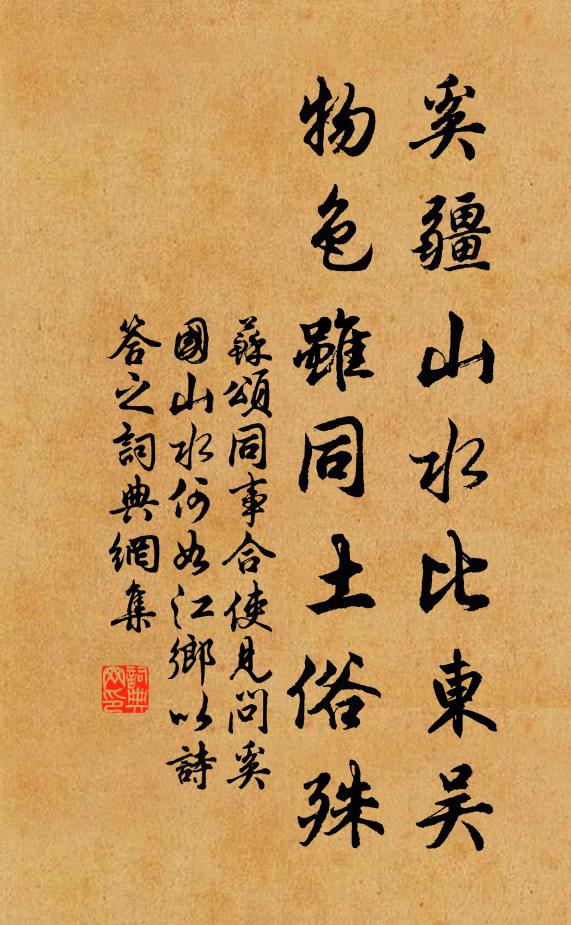 奚疆山水比東吴
物色雖同土俗殊
蘇頌同事合使見問奚
國山水何如江鄉以詩
答之詞典網集
詞典
网印